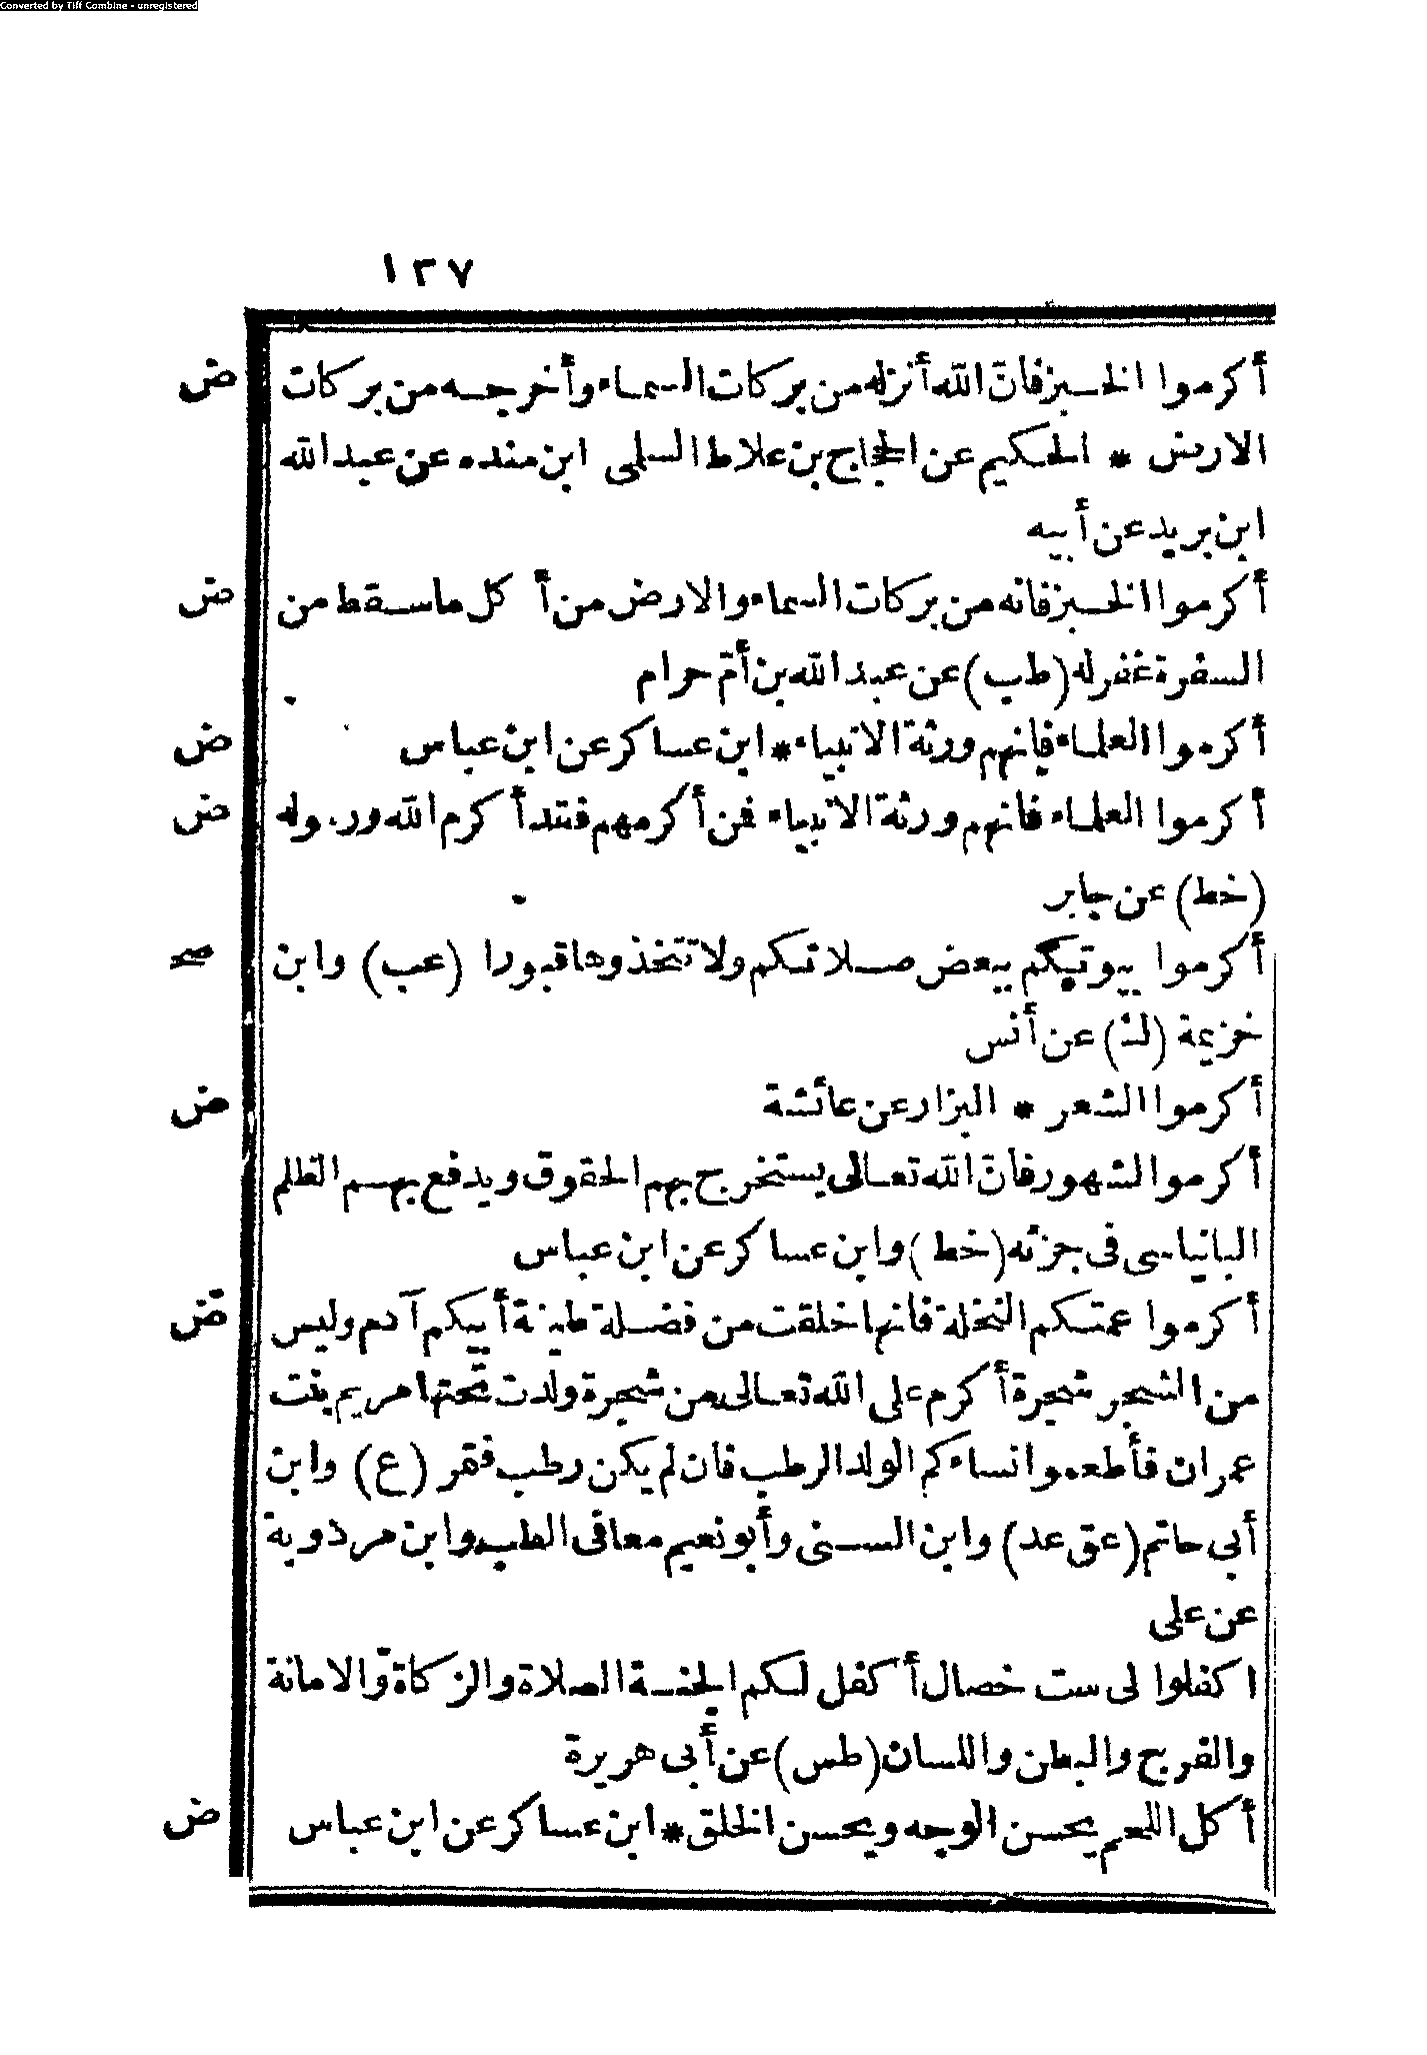 Converted by Tiff Combine - unregistered
١٢٧
أكرموا الخبز فانّ الله أنزله من بركات السماء وأخرجه من بركات ض
الارض * الحكيم عن الحجاج بن علاط السلمى ابن منده عن عبد الله
ابن بريد عن أبيه
أكرموا الخبز فانه من بركات السماء والارض من أكل ما سقط من ض
السفرة غفر له (طب) عن عبد الله بن أمّ حرام
أكرموا العلماء فانهم ورثة الانبياء * ابن عساكر عن ابن عباس ض
أكرموا العلماء فانهم ورثة الانبياء فمن أكرمهم فقد أكرم الله ورسوله ض
(خط) عن جابر
أكرموا بيوتكم ببعض صلاتكم ولا تتخذوها قبورا (عب) وابن صح
خزيمة (ك) عن أنس
أكرموا الشعر * البزار عن عائشة ض
أكرموا الشهور فانّ الله تعالى يستخرج بهم الحقوق ويدفع بهم الظلم
البانياسى فى جزئه (خط) وابن عساكر عن ابن عباس
أكرموا عمتكم النخلة فانها خلقت من فضلة طينة أبيكم آدم وليس ض
من الشجر شجرة أكرم على الله تعالى من شجرة ولدت تحتها مريم بنت
عمران فأطعموا نساءكم الولد الرطب فان لم يكن رطب فتمر (ع) وابن
أبى حاتم (عق عد) وابن السنى وأبو نعيم معا فى الطب وابن مردوية
عن على
اكفلوا لى ست خصال أكفل لكم الجنة الصلاة والزكاة والامانة
والفرج والبطن واللسان (طس) عن أبى هريرة
أكل اللحم يحسن الوجه ويحسن الخلق * ابن عساكر عن ابن عباس ض